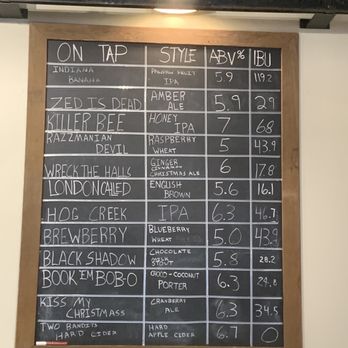 ON TAP STYLE ABV% IBU
INDIANA BANANA PASSION FRUIT IPA 5.9 119.2
ZED IS DEAD AMBER ALE 5.9 29
KILLER BEE HONEY IPA 7 68
RAZZMANIAN DEVIL RASPBERRY WHEAT 5 43.9
WRECK THE HALLS GINGER CINNAMON CHRISTMAS ALE 6 17.8
LONDON CALLED ENGLISH BROWN 5.6 16.1
HOG CREEK IPA 6.3 46.7
BREWBERRY BLUEBERRY WHEAT 5.0 43.9
BLACK SHADOW CHOCOLATE STOUT 5.8 28.2
BOOK 'EM BOB-O COCO-COCONUT PORTER 6.3 24.8
KISS MY CHRISTMASS CRANBERRY ALE 6.3 34.5
TWO BANDITS HARD CIDER HARD APPLE CIDER 6.7 0